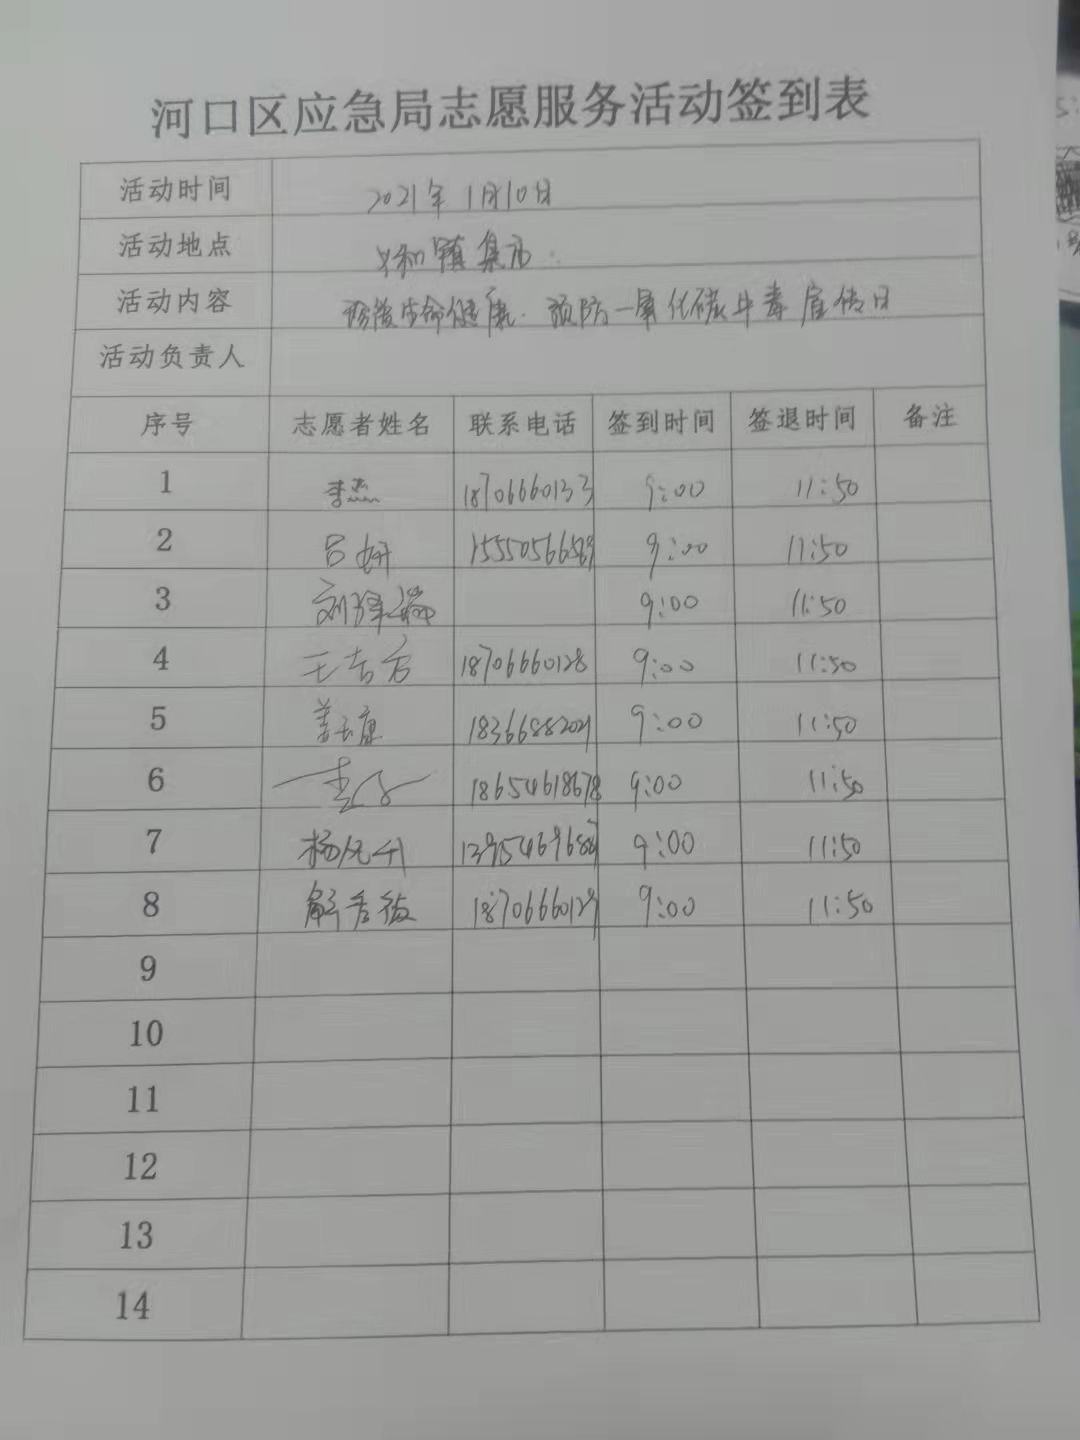 河口区应急局志愿服务活动签到表
活动时间 2021年1月10日
活动地点 义和镇集市
活动内容 生命健康 预防一氧化碳中毒宣传日
活动负责人
序号 志愿者姓名 联系电话 签到时间 签退时间 备注
1 李杰 18706660133 9:00 11:50
2 吕妍 9:00 11:50
3 9:00 11:50
4 18706660128 9:00 11:50
5 9:00 11:50
6 18654618678 9:00 11:50
7 9:00 11:50
8 9:00 11:50
9
10
11
12
13
14